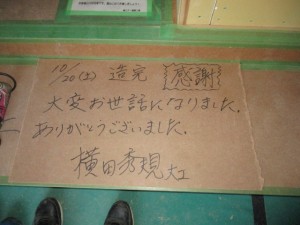 10/20(土) 造完 感謝
大変お世話になりました。
ありがとうございました。
横田秀規 大工